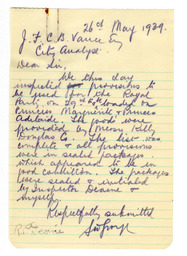 26th May 1939.
J. F. C. B. Vance Esq
City Analyst.
Dear Sir,
We this day
inspected provisions to
be used for the Royal
Party, on 29th
Princess Marguerite & Princess
Adelaide. The goods were
provided by Messrs Kelly
Douglas Co. The list was
complete & all provisions
were in sealed packages
which appeared to be in
good condition. The packages
were sealed & initialed
by Inspector Devine &
myself.
Respectfully submitted